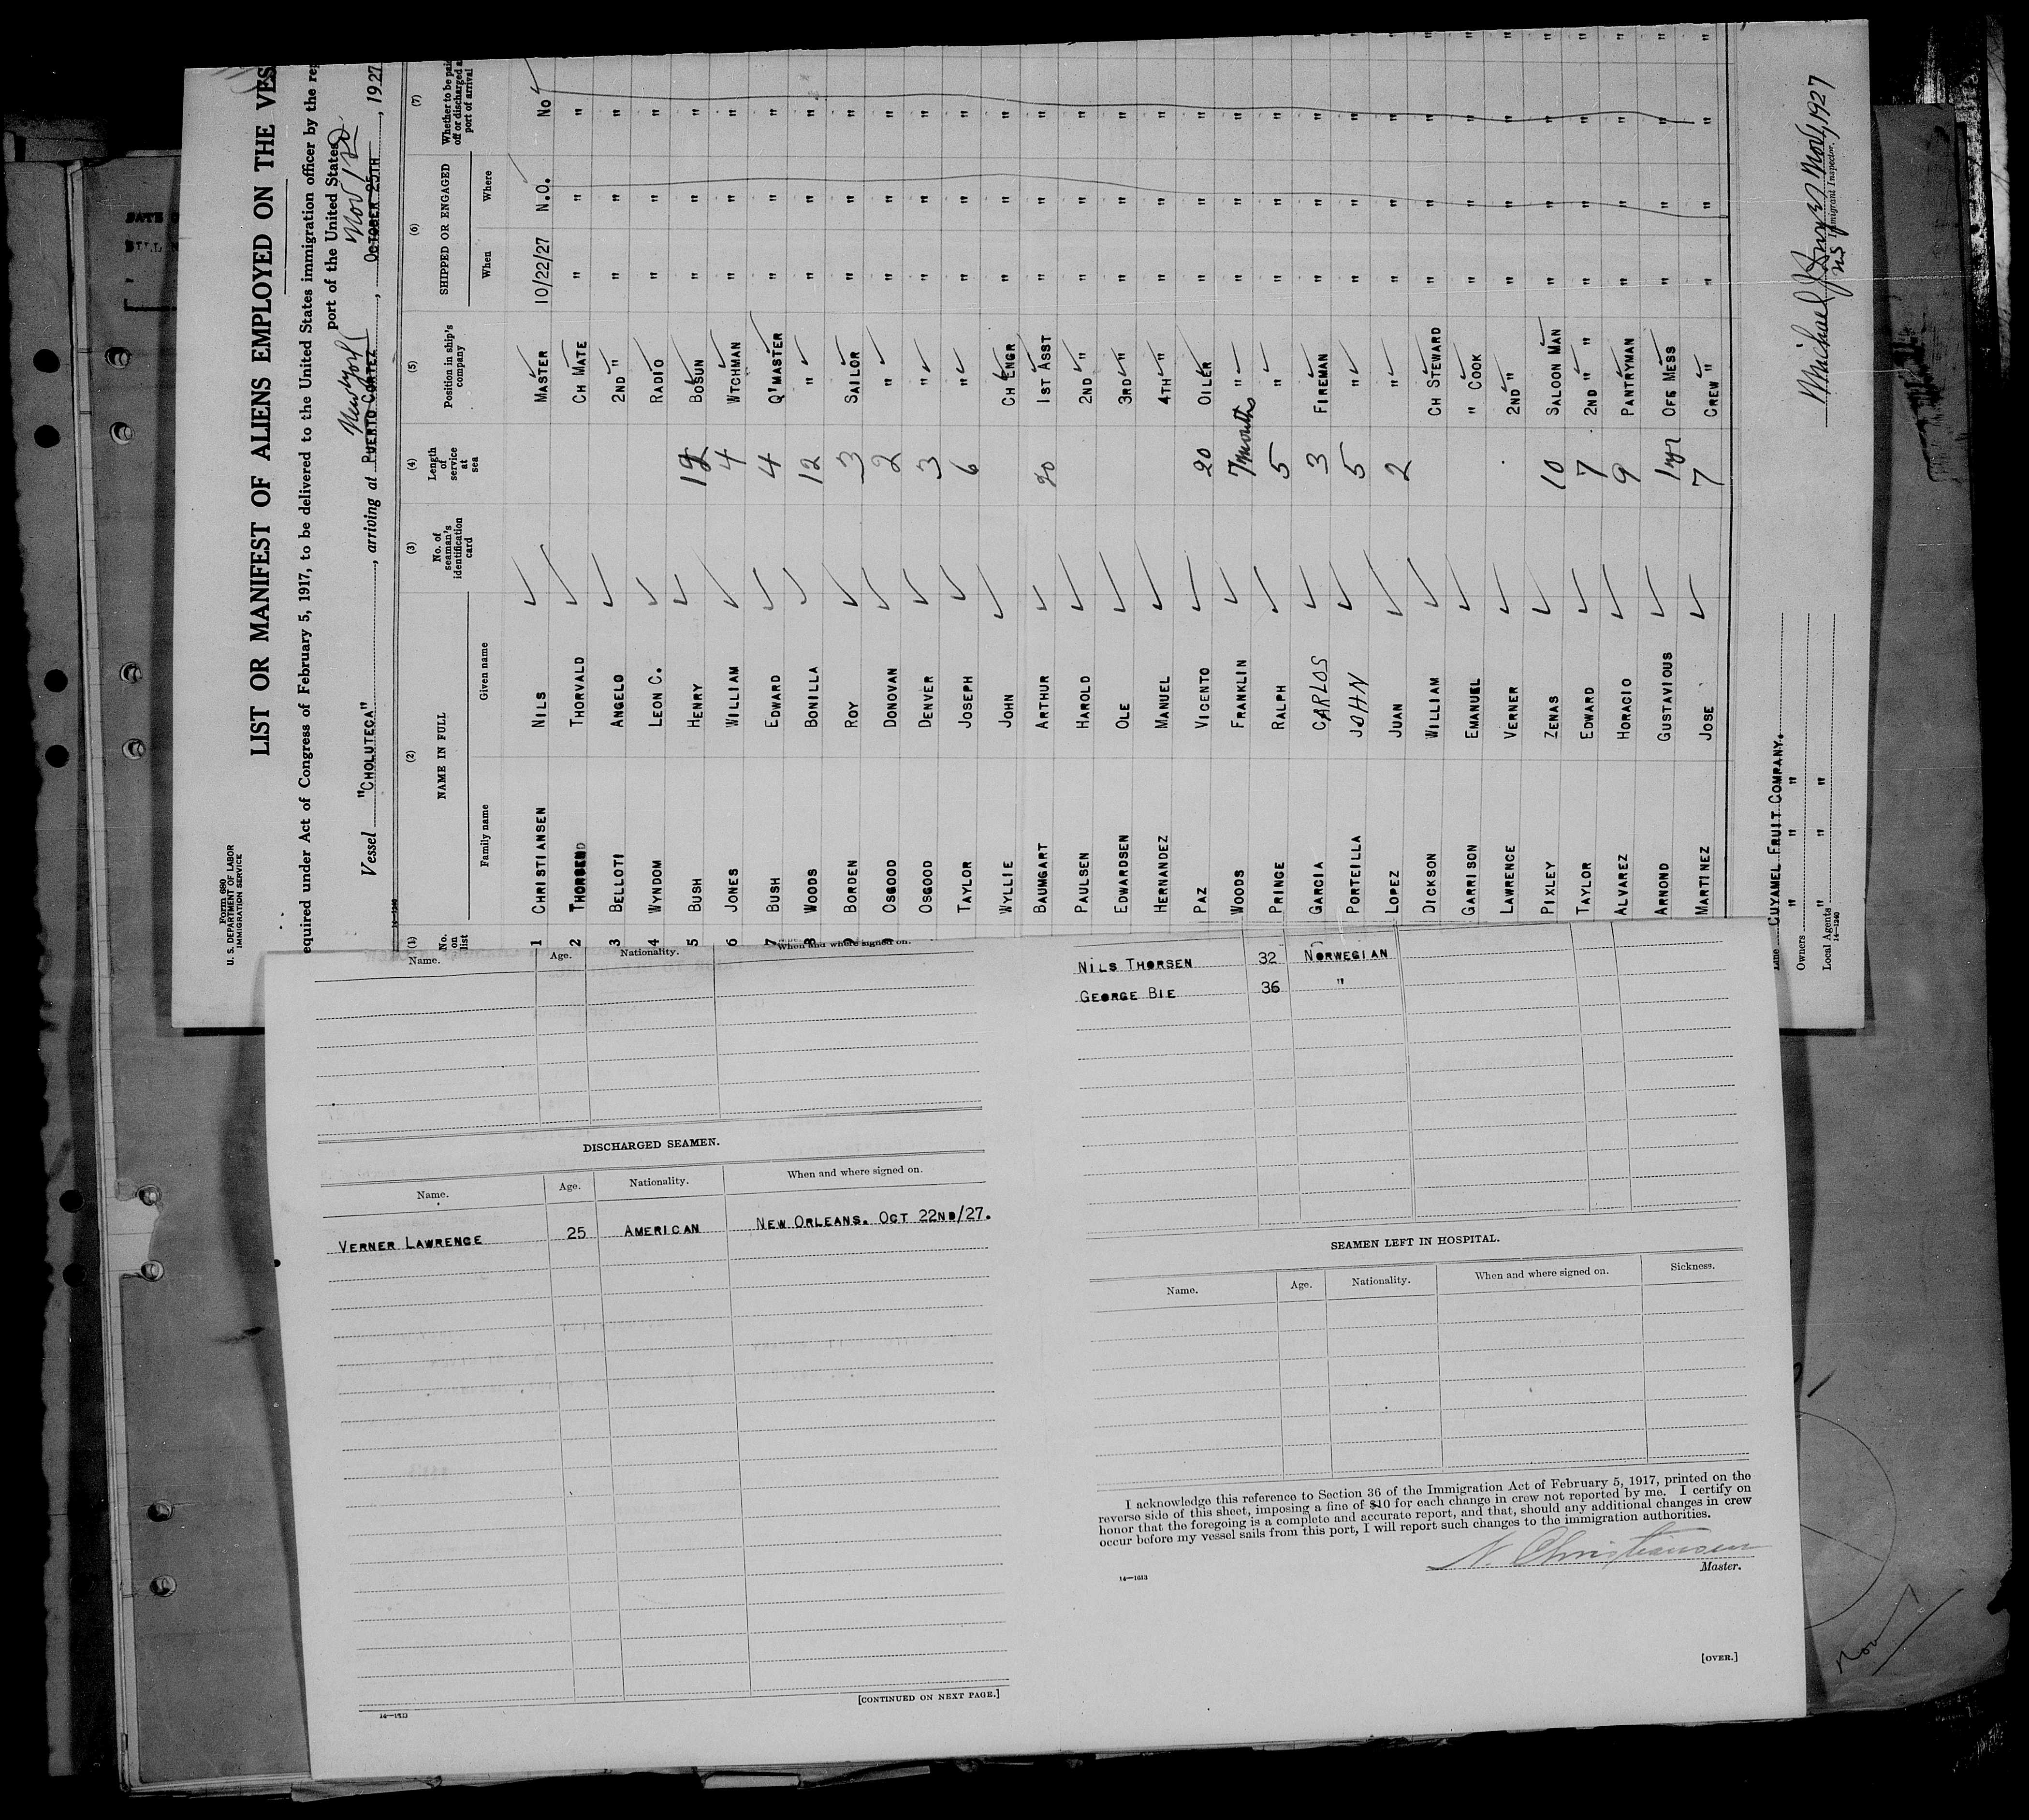 Form 680
U. S. DEPARTMENT OF LABOR
IMMIGRATION SERVICE
LIST OR MANIFEST OF ALIENS EMPLOYED ON THE VES
equired under Act of Congress of February 5, 1917, to be delivered to the United States immigration officer by the rep
port of the United States
New York Nov 1st
Vessel "CHOLUTECA" , arriving at PUERTO CORTEZ , OCTOBER 25TH , 1927
(1) (2) (3) (4) (5) (6) (7)
No. on list NAME IN FULL No. of seaman's identification card Length of service at sea Position in ship's company SHIPPED OR ENGAGED Whether to be paid off or discharged a port of arrival
Family name Given name When Where
1 CHRISTIANSEN NILS MASTER 10/22/27 N.O. No
2 THORSEN THORVALD CH MATE " " "
3 BELLOTI ANGELO 2ND " " " "
4 WYNDOM LEON C. RADIO " " "
5 BUSH HENRY 12 BOSUN " " "
6 JONES WILLIAM 4 WTCHMAN " " "
7 BUSH EDWARD 4 Q'MASTER " " "
8 WOODS BONILLA 12 " " " "
9 BORDEN ROY 3 SAILOR " " "
OSGOOD DONOVAN 2 " " " "
OSGOOD DENVER 3 " " " "
TAYLOR JOSEPH 6 " " " "
WYLLIE JOHN CH ENGR " " "
BAUMGART ARTHUR 20 1ST ASST " " "
PAULSEN HAROLD 2ND " " " "
EDWARDSEN OLE 3RD " " " "
HERNANDEZ MANUEL 4TH " " " "
PAZ VICENTO 20 OILER " " "
WOODS FRANKLIN 7 months " " " "
PRINCE RALPH 5 " " " "
GARCIA CARLOS 3 FIREMAN " " "
PORTEILLA JOHN 5 " " " "
LOPEZ JUAN 2 " " " "
DICKSON WILLIAM CH STEWARD " " "
GARRISON EMANUEL " COOK " " "
LAWRENCE VERNER 2ND " " " "
PIXLEY ZENAS 10 SALOON MAN " " "
TAYLOR EDWARD 7 2ND " " " " "
ALVAREZ HORACIO 9 PANTRYMAN " " "
ARNOND GUSTAVIOUS 1 yr OFF MESS " " "
MARTINEZ JOSE 7 CREW " " " "
Line CUYAMEL FRUIT COMPANY.
Owners " " "
Local Agents " " "
14—1240
Michael J Nov 1, 1927
Immigrant Inspector.
Name. Age. Nationality. When and where signed on.
DISCHARGED SEAMEN.
Name. Age. Nationality. When and where signed on.
VERNER LAWRENCE 25 AMERICAN NEW ORLEANS. OCT 22ND/27.
[CONTINUED ON NEXT PAGE.]
14—1613
NILS THORSEN 32 NORWEGIAN
GEORGE BIE 36 "
SEAMEN LEFT IN HOSPITAL.
Name. Age. Nationality. When and where signed on. Sickness.
I acknowledge this reference to Section 36 of the Immigration Act of February 5, 1917, printed on the
reverse side of this sheet, imposing a fine of $10 for each change in crew not reported by me. I certify on
honor that the foregoing is a complete and accurate report, and that, should any additional changes in crew
occur before my vessel sails from this port, I will report such changes to the immigration authorities.
N. Christiansen
Master.
14—1613
[OVER.]
Nov